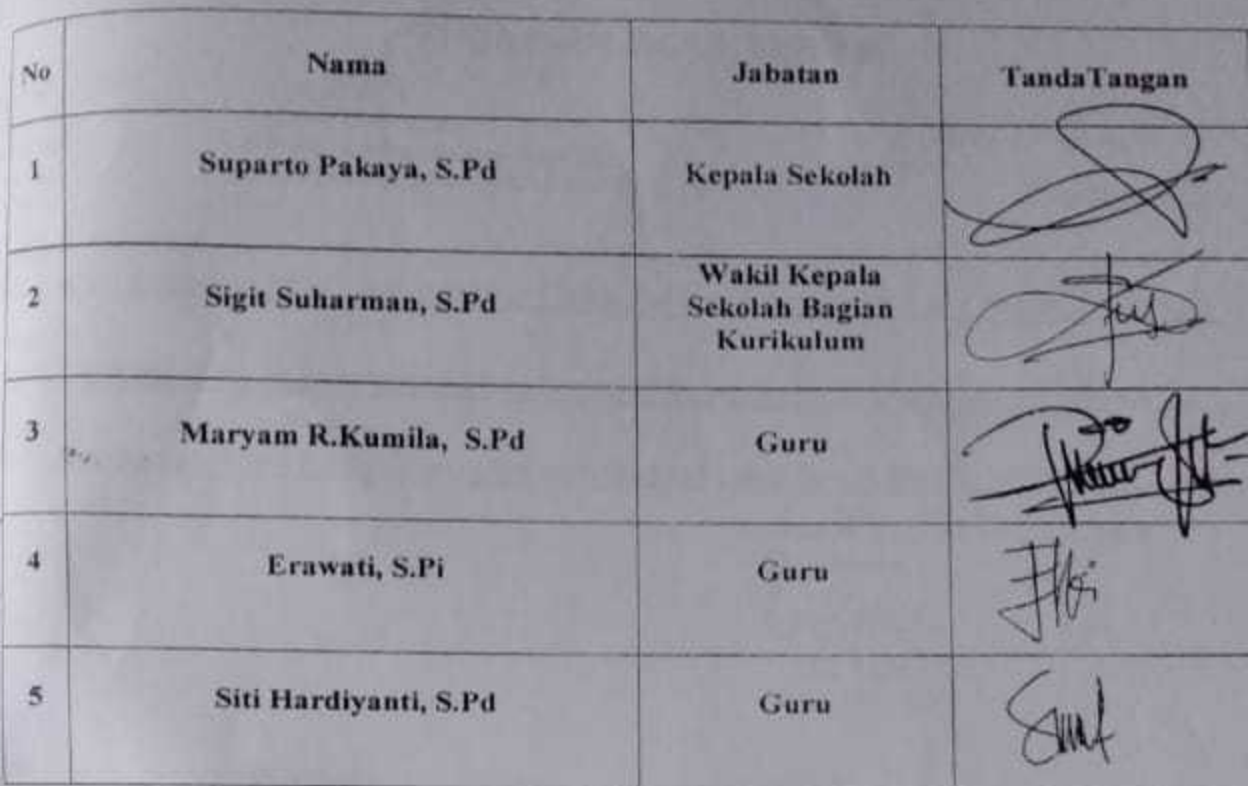 No Nama Jabatan TandaTangan
1 Suparto Pakaya, S.Pd Kepala Sekolah
2 Sigit Suharman, S.Pd Wakil Kepala
Sekolah Bagian
Kurikulum
3 Maryam R.Kumila, S.Pd Guru
4 Erawati, S.Pi Guru
5 Siti Hardiyanti, S.Pd Guru